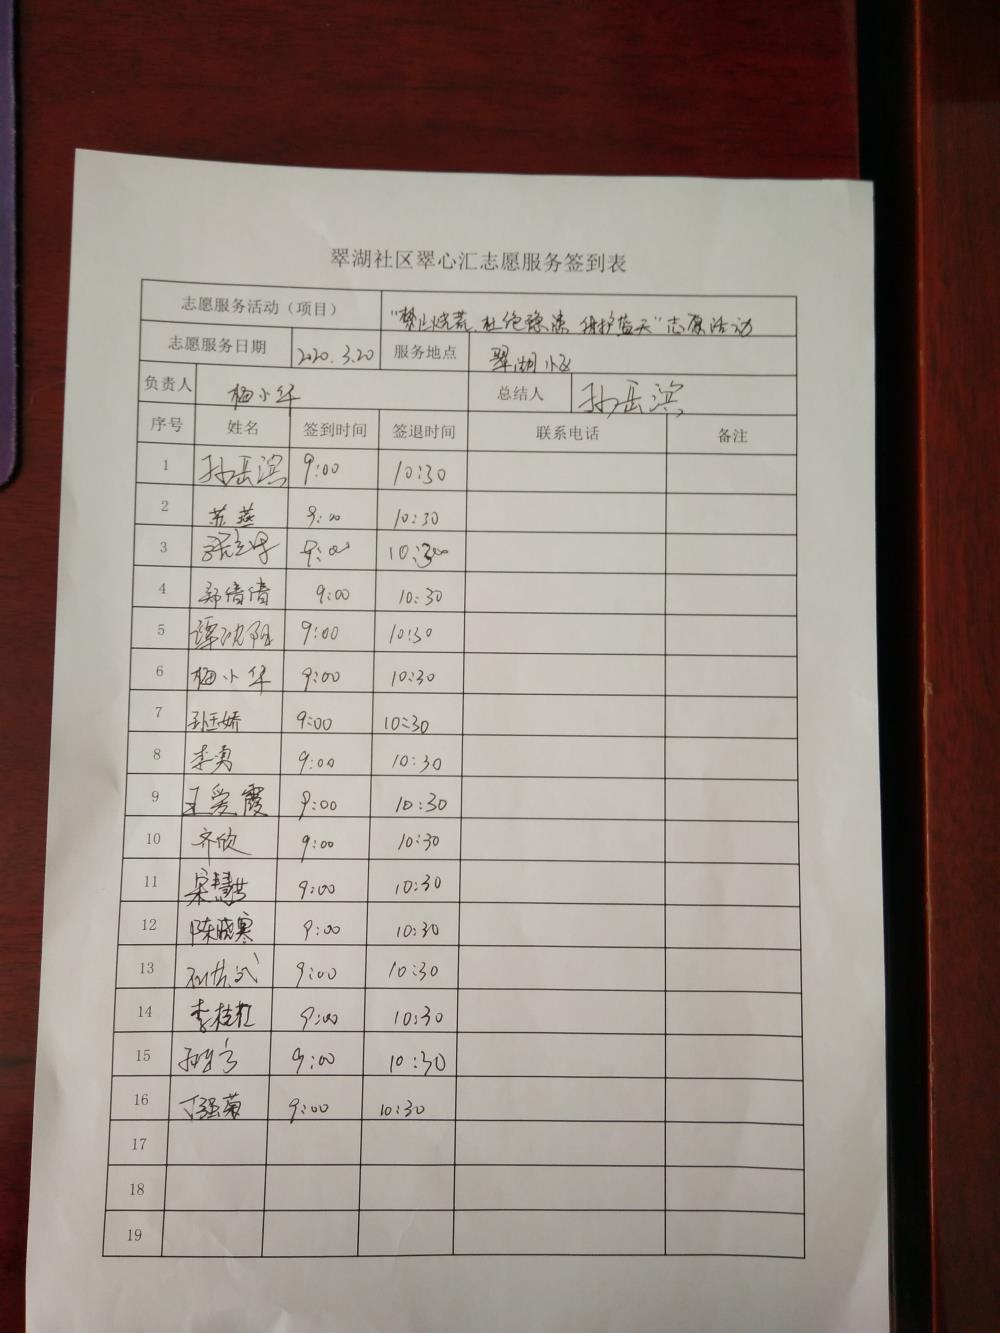 翠湖社区翠心汇志愿服务签到表
志愿服务活动（项目） "禁止烧荒、杜绝隐患 保护蓝天"志愿活动
志愿服务日期 2020.3.20 服务地点 翠湖小区
负责人 梅小华 总结人 孙岳滨
序号 姓名 签到时间 签退时间 联系电话 备注
1 孙岳滨 9:00 10:30
2 苏燕 9:00 10:30
3 9:00 10:30
4 郑倩倩 9:00 10:30
5 谭沈阳 9:00 10:30
6 梅小华 9:00 10:30
7 9:00 10:30
8 李勇 9:00 10:30
9 王爱霞 9:00 10:30
10 齐欣 9:00 10:30
11 宋慧芳 9:00 10:30
12 陈晓寒 9:00 10:30
13 9:00 10:30
14 李桂红 9:00 10:30
15 9:00 10:30
16 丁强菊 9:00 10:30
17
18
19